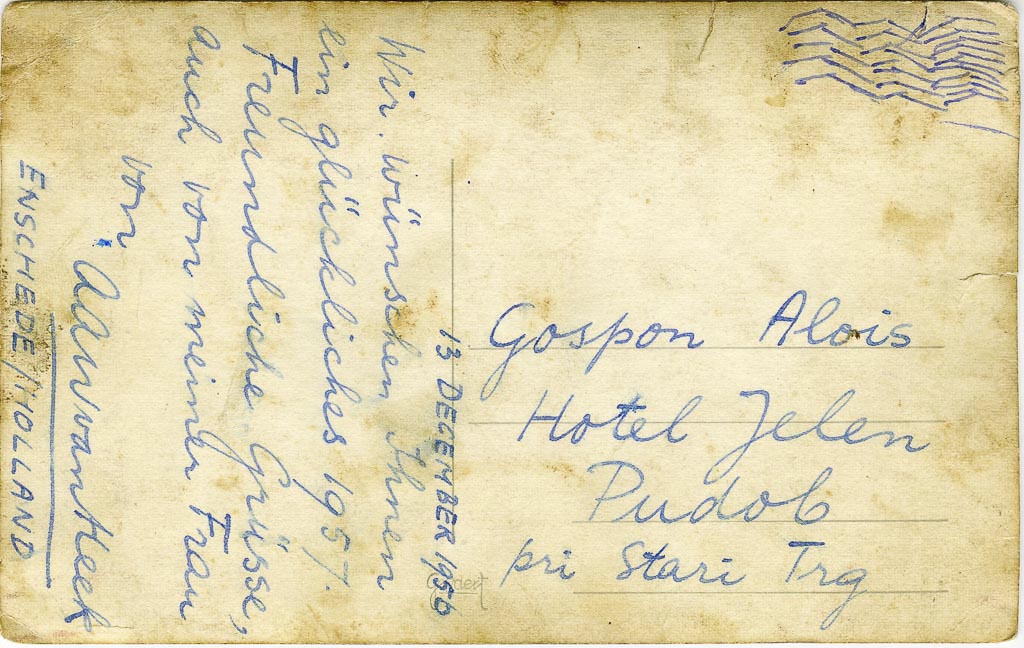 13 DECEMBER 1956
Wir wünschen Ihnen
ein glückliches 1957.
Freundliche Grüsse,
auch von meiner Frau
von
AHWvanHeek
ENSCHEDE/HOLLAND
Gospon Alois
Hotel Jelen
Pudob
pri Stari Trg